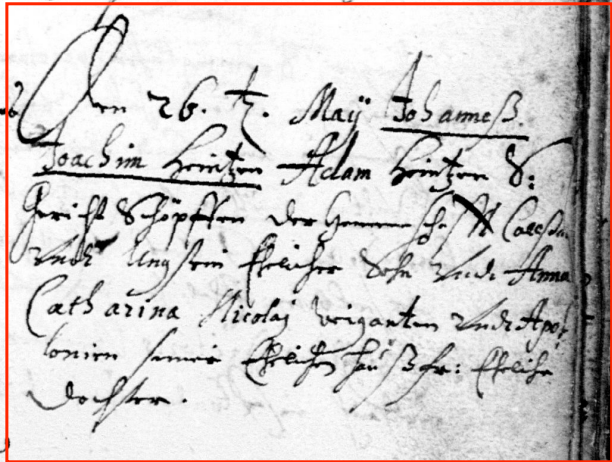 Den 26. tz. Maÿ Johanneß
Joachim Heintzen Adam Heintzen S:
Gericht Schöpffen der Gemeinschafft
Undt Ungstein Ehelicher Sohn Undt Anna
Catharina Nicolaj Weiganten Undt Apol
lonien seiner Ehelichen haußfr: Eheliche
Dochter.